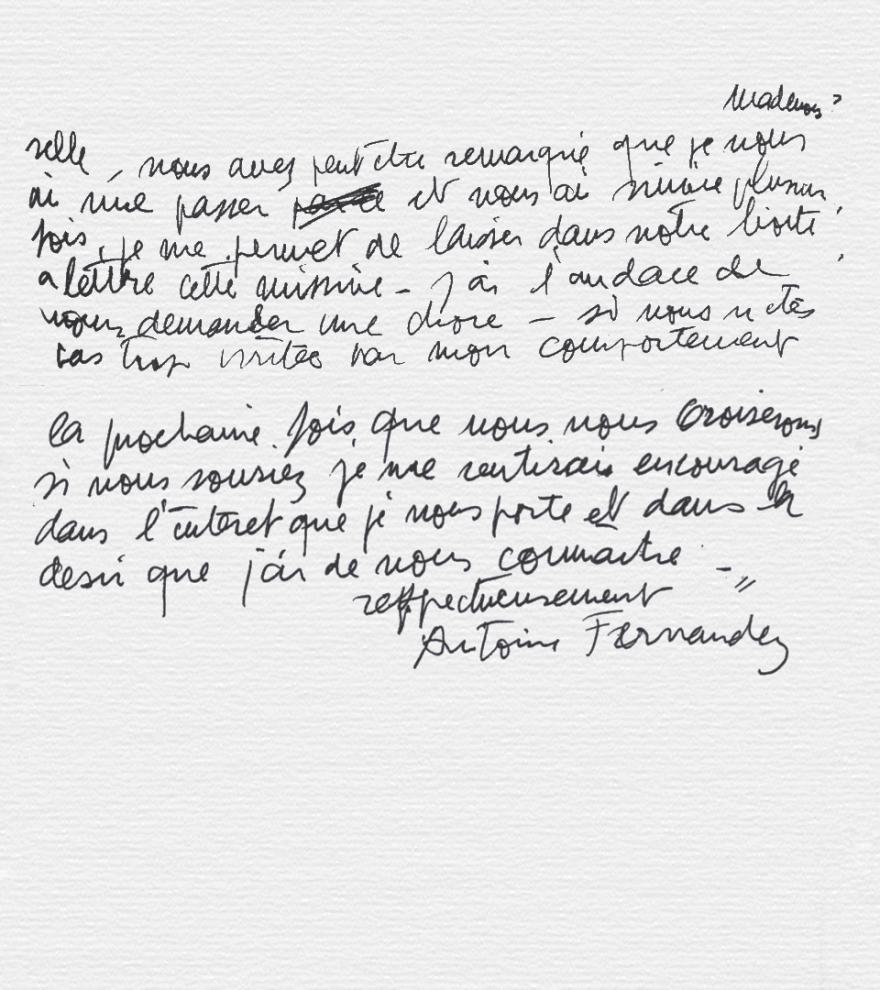 Mademoi
selle, vous avez peut être remarqué que je vous
ai vue passer et vous ai suivie plusieurs
fois, je me permet de laisser dans votre boite
a lettre cette missive - j'ai l'audace de
vous demander une chose - si vous n'etes
pas trop irritée par mon comportement
la prochaine fois que nous nous croiserons
si vous souriez je me sentirais encouragé
dans l'interet que je vous porte et dans le
desir que j'ai de vous connaitre -
respectueusement
Antoine Fernandez